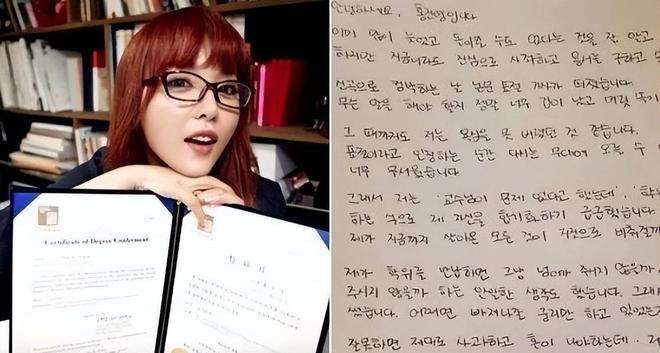 Certificate of Degree Conferment
학위기
안녕하세요, 홍진영입니다
이미 많이 늦었고 돌이킬 수도 없다는 것을 잘 알고
하지만 지금이라도 진심으로 사죄하고 용서를 구하고
신곡으로 컴백하는 날 논문 표절 기사가 터졌습니다
무슨 말을 해야 할지 정말 너무 겁이 났고 머릿속이
그 때까지도 저는 욕심을 못 버렸던 것 같습니다.
표절이라고 인정하는 순간 다시는 무대에 오를 수
너무 무서웠습니다
그래서 저는 '교수님이 문제 없다고 했는데', '학위
하는 식으로 제 자신을 합리화하기 급급했습니다
제가 지금까지 살아온 모든 것이 거짓으로 비춰질까
제가 학위를 반납하면 그냥 넘어가 주시지 않을까
주시지 않을까 하는 안일한 생각도 했습니다. 그래서
썼습니다. 어떻게든 빠져나갈 궁리만 하고 있었던
잘못하면 제대로 사과하고 혼이 나야하는데, 저